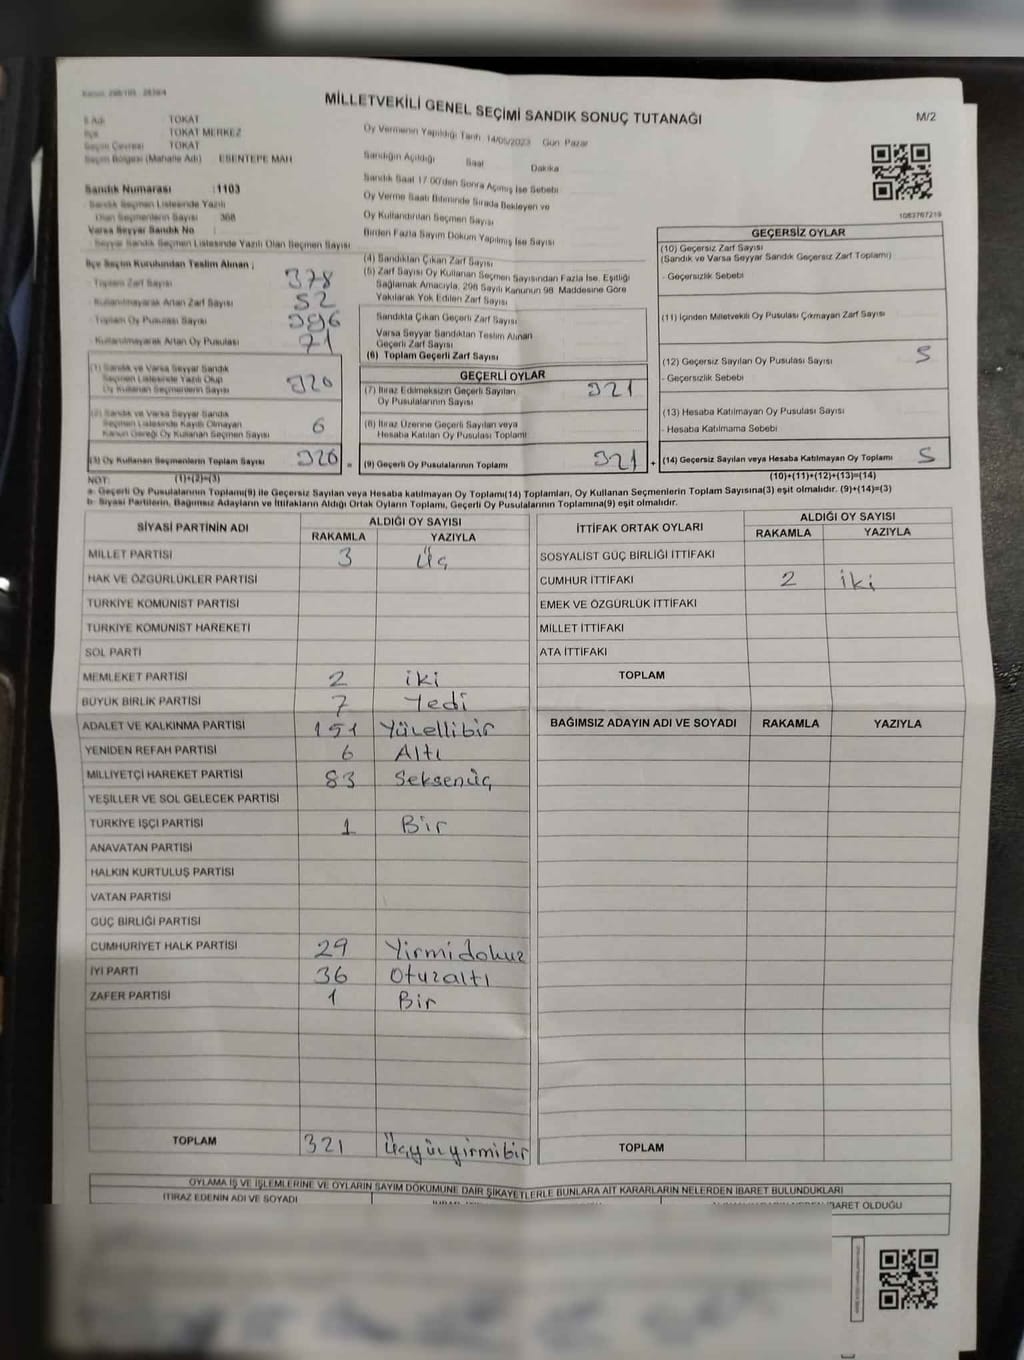 MİLLETVEKİLİ GENEL SEÇİMİ SANDIK SONUÇ TUTANAĞI
M/2
İl Adı TOKAT
İlçe TOKAT MERKEZ
Seçim Çevresi TOKAT
Seçim Bölgesi (Mahalle Adı) ESENTEPE MAH
Sandık Numarası :1103
Sandık Seçmen Listesinde Yazılı
Olan Seçmenlerin Sayısı 368
Varsa Seyyar Sandık No :
Seyyar Sandık Seçmen Listesinde Yazılı Olan Seçmen Sayısı
Oy Vermenin Yapıldığı Tarih 14/05/2023 Gün Pazar
Sandığın Açıldığı Saat Dakika
Sandık Saat 17:00'den Sonra Açılmış İse Sebebi
Oy Verme Saati Bitiminde Sırada Bekleyen ve
Oy Kullandırılan Seçmen Sayısı
Birden Fazla Sayım Döküm Yapılmış İse Sayısı
1083767219
İlçe Seçim Kurulundan Teslim Alınan ;
Toplam Zarf Sayısı 378
Kullanılmayarak Artan Zarf Sayısı 52
Toplam Oy Pusulası Sayısı 396
Kullanılmayarak Artan Oy Pusulası 71
(1) Sandık ve Varsa Seyyar Sandık
Seçmen Listesinde Yazılı Olup
Oy Kullanan Seçmenlerin Sayısı 320
(2) Sandık ve Varsa Seyyar Sandık
Seçmen Listesinde Kayıtlı Olmayan
Kanun Gereği Oy Kullanan Seçmen Sayısı 6
(3) Oy Kullanan Seçmenlerin Toplam Sayısı 326 =
(4) Sandıktan Çıkan Zarf Sayısı
(5) Zarf Sayısı Oy Kullanan Seçmen Sayısından Fazla İse, Eşitliği
Sağlamak Amacıyla, 298 Sayılı Kanunun 98. Maddesine Göre
Yakılarak Yok Edilen Zarf Sayısı
Sandıkta Çıkan Geçerli Zarf Sayısı
Varsa Seyyar Sandıktan Teslim Alınan
Geçerli Zarf Sayısı
(6) Toplam Geçerli Zarf Sayısı
GEÇERLİ OYLAR
(7) İtiraz Edilmeksizin Geçerli Sayılan
Oy Pusulalarının Sayısı 321
(8) İtiraz Üzerine Geçerli Sayılan veya
Hesaba Katılan Oy Pusulası Toplamı
(9) Geçerli Oy Pusulalarının Toplamı 321 +
GEÇERSİZ OYLAR
(10) Geçersiz Zarf Sayısı
(Sandık ve Varsa Seyyar Sandık Geçersiz Zarf Toplamı)
- Geçersizlik Sebebi
(11) İçinden Milletvekili Oy Pusulası Çıkmayan Zarf Sayısı
(12) Geçersiz Sayılan Oy Pusulası Sayısı 5
- Geçersizlik Sebebi
(13) Hesaba Katılmayan Oy Pusulası Sayısı
- Hesaba Katılmama Sebebi
(14) Geçersiz Sayılan veya Hesaba Katılmayan Oy Toplamı 5
NOT: (1)+(2)=(3)
(10)+(11)+(12)+(13)=(14)
a- Geçerli Oy Pusulalarının Toplamı(9) ile Geçersiz Sayılan veya Hesaba katılmayan Oy Toplamı(14) Toplamları, Oy Kullanan Seçmenlerin Toplam Sayısına(3) eşit olmalıdır. (9)+(14)=(3)
b- Siyasi Partilerin, Bağımsız Adayların ve İttifakların Aldığı Ortak Oyların Toplamı, Geçerli Oy Pusulalarının Toplamına(9) eşit olmalıdır.
SİYASİ PARTİNİN ADI
ALDIĞI OY SAYISI
RAKAMLA YAZIYLA
MİLLET PARTİSİ 3 Üç
HAK VE ÖZGÜRLÜKLER PARTİSİ
TÜRKİYE KOMÜNİST PARTİSİ
TÜRKİYE KOMÜNİST HAREKETİ
SOL PARTİ
MEMLEKET PARTİSİ 2 iki
BÜYÜK BİRLİK PARTİSİ 7 Yedi
ADALET VE KALKINMA PARTİSİ 151 Yüzellibir
YENİDEN REFAH PARTİSİ 6 Altı
MİLLİYETÇİ HAREKET PARTİSİ 83 Seksenüç
YEŞİLLER VE SOL GELECEK PARTİSİ
TÜRKİYE İŞÇİ PARTİSİ 1 Bir
ANAVATAN PARTİSİ
HALKIN KURTULUŞ PARTİSİ
VATAN PARTİSİ
GÜÇ BİRLİĞİ PARTİSİ
CUMHURİYET HALK PARTİSİ 29 Yirmidokuz
İYİ PARTİ 36 Otuzaltı
ZAFER PARTİSİ 1 Bir
TOPLAM 321 Üçyüzyirmibir
İTTİFAK ORTAK OYLARI
ALDIĞI OY SAYISI
RAKAMLA YAZIYLA
SOSYALİST GÜÇ BİRLİĞİ İTTİFAKI
CUMHUR İTTİFAKI 2 iki
EMEK VE ÖZGÜRLÜK İTTİFAKI
MİLLET İTTİFAKI
ATA İTTİFAKI
TOPLAM
BAĞIMSIZ ADAYIN ADI VE SOYADI RAKAMLA YAZIYLA
TOPLAM
OYLAMA İŞ VE İŞLEMLERİNE VE OYLARIN SAYIM DÖKÜMÜNE DAİR ŞİKAYETLERLE BUNLARA AİT KARARLARIN NELERDEN İBARET BULUNDUKLARI
İTİRAZ EDENİN ADI VE SOYADI
İBARET OLDUĞU